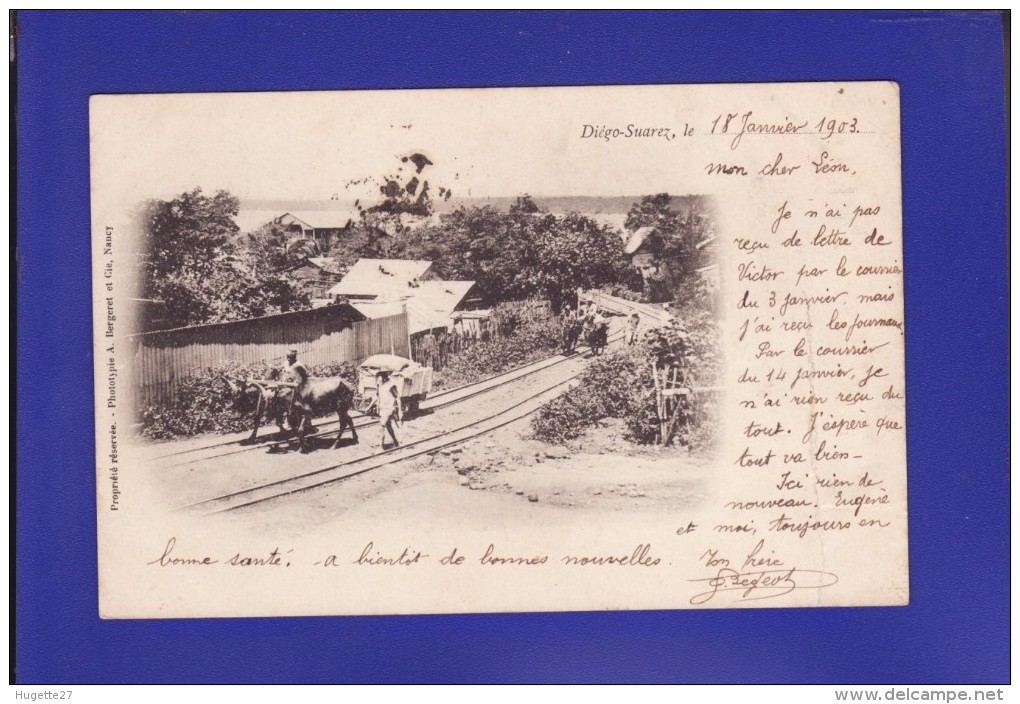 Diégo-Suarez, le 18 Janvier 1903.
mon cher Léon,
Je n'ai pas
reçu de lettre de
Victor par le courrier
du 3 janvier, mais
j'ai reçu les journaux.
Par le courrier
du 14 janvier, je
n'ai rien reçu du
tout. J'espère que
tout va bien-
Ici rien de
nouveau. Eugène
et moi, toujours en
bonne santé. - a bientôt de bonnes nouvelles. Ton frère
Propriété réservée. - Phototypie A. Bergeret et Cie, Nancy
Hugette27
www.delcampe.net